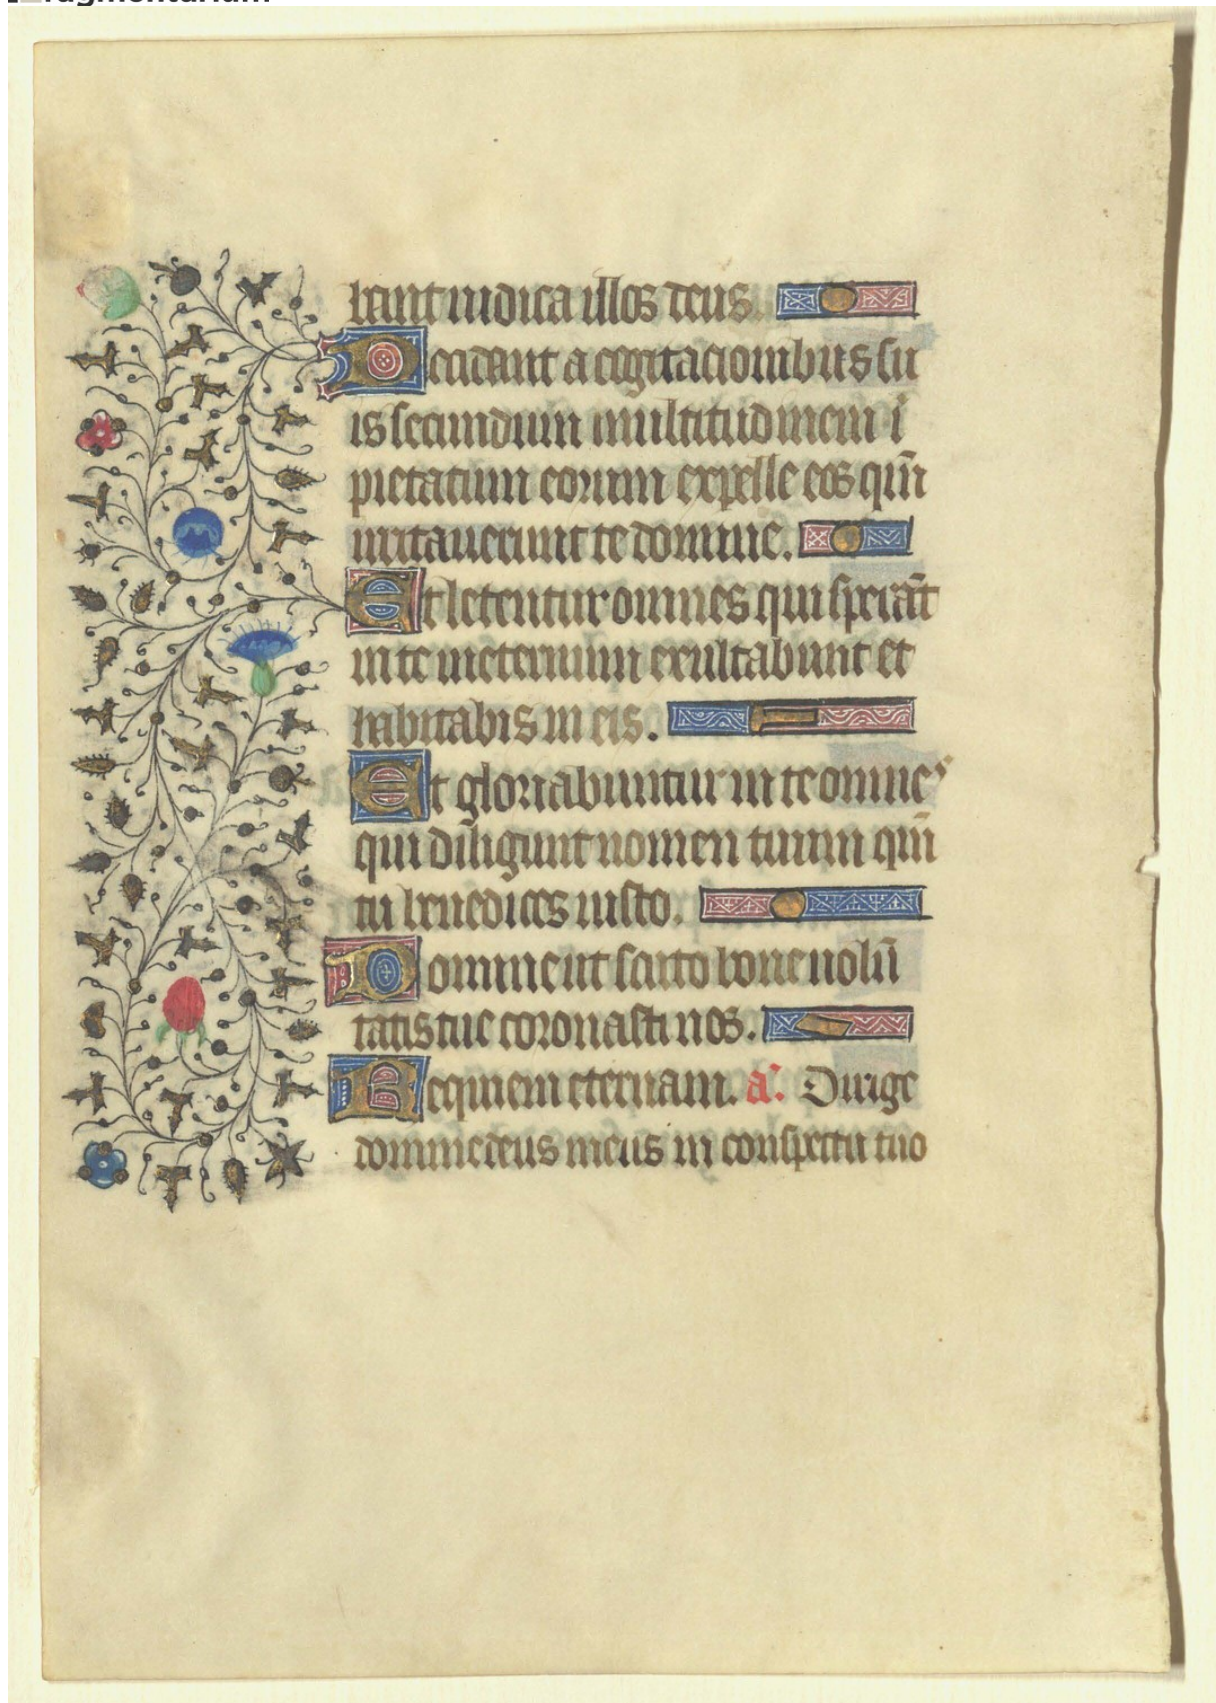 bant iudica illos deus.
Decidant a cogitacionibus su
is secundum multitudinem i
pietatum eorum expelle eos qm̄
irritauerunt te domine.
Et letentur omnes qui sperāt
in te ineternum exultabunt et
habitabis in eis.
Et gloriabuntur in te omnes
qui diligunt nomen tuum qm̄
tu benedices iusto.
Domine ut scuto bone uolū
tatis tue coronasti nos.
Requiem eternam. a. Dirige
domine deus meus in conspectu tuo